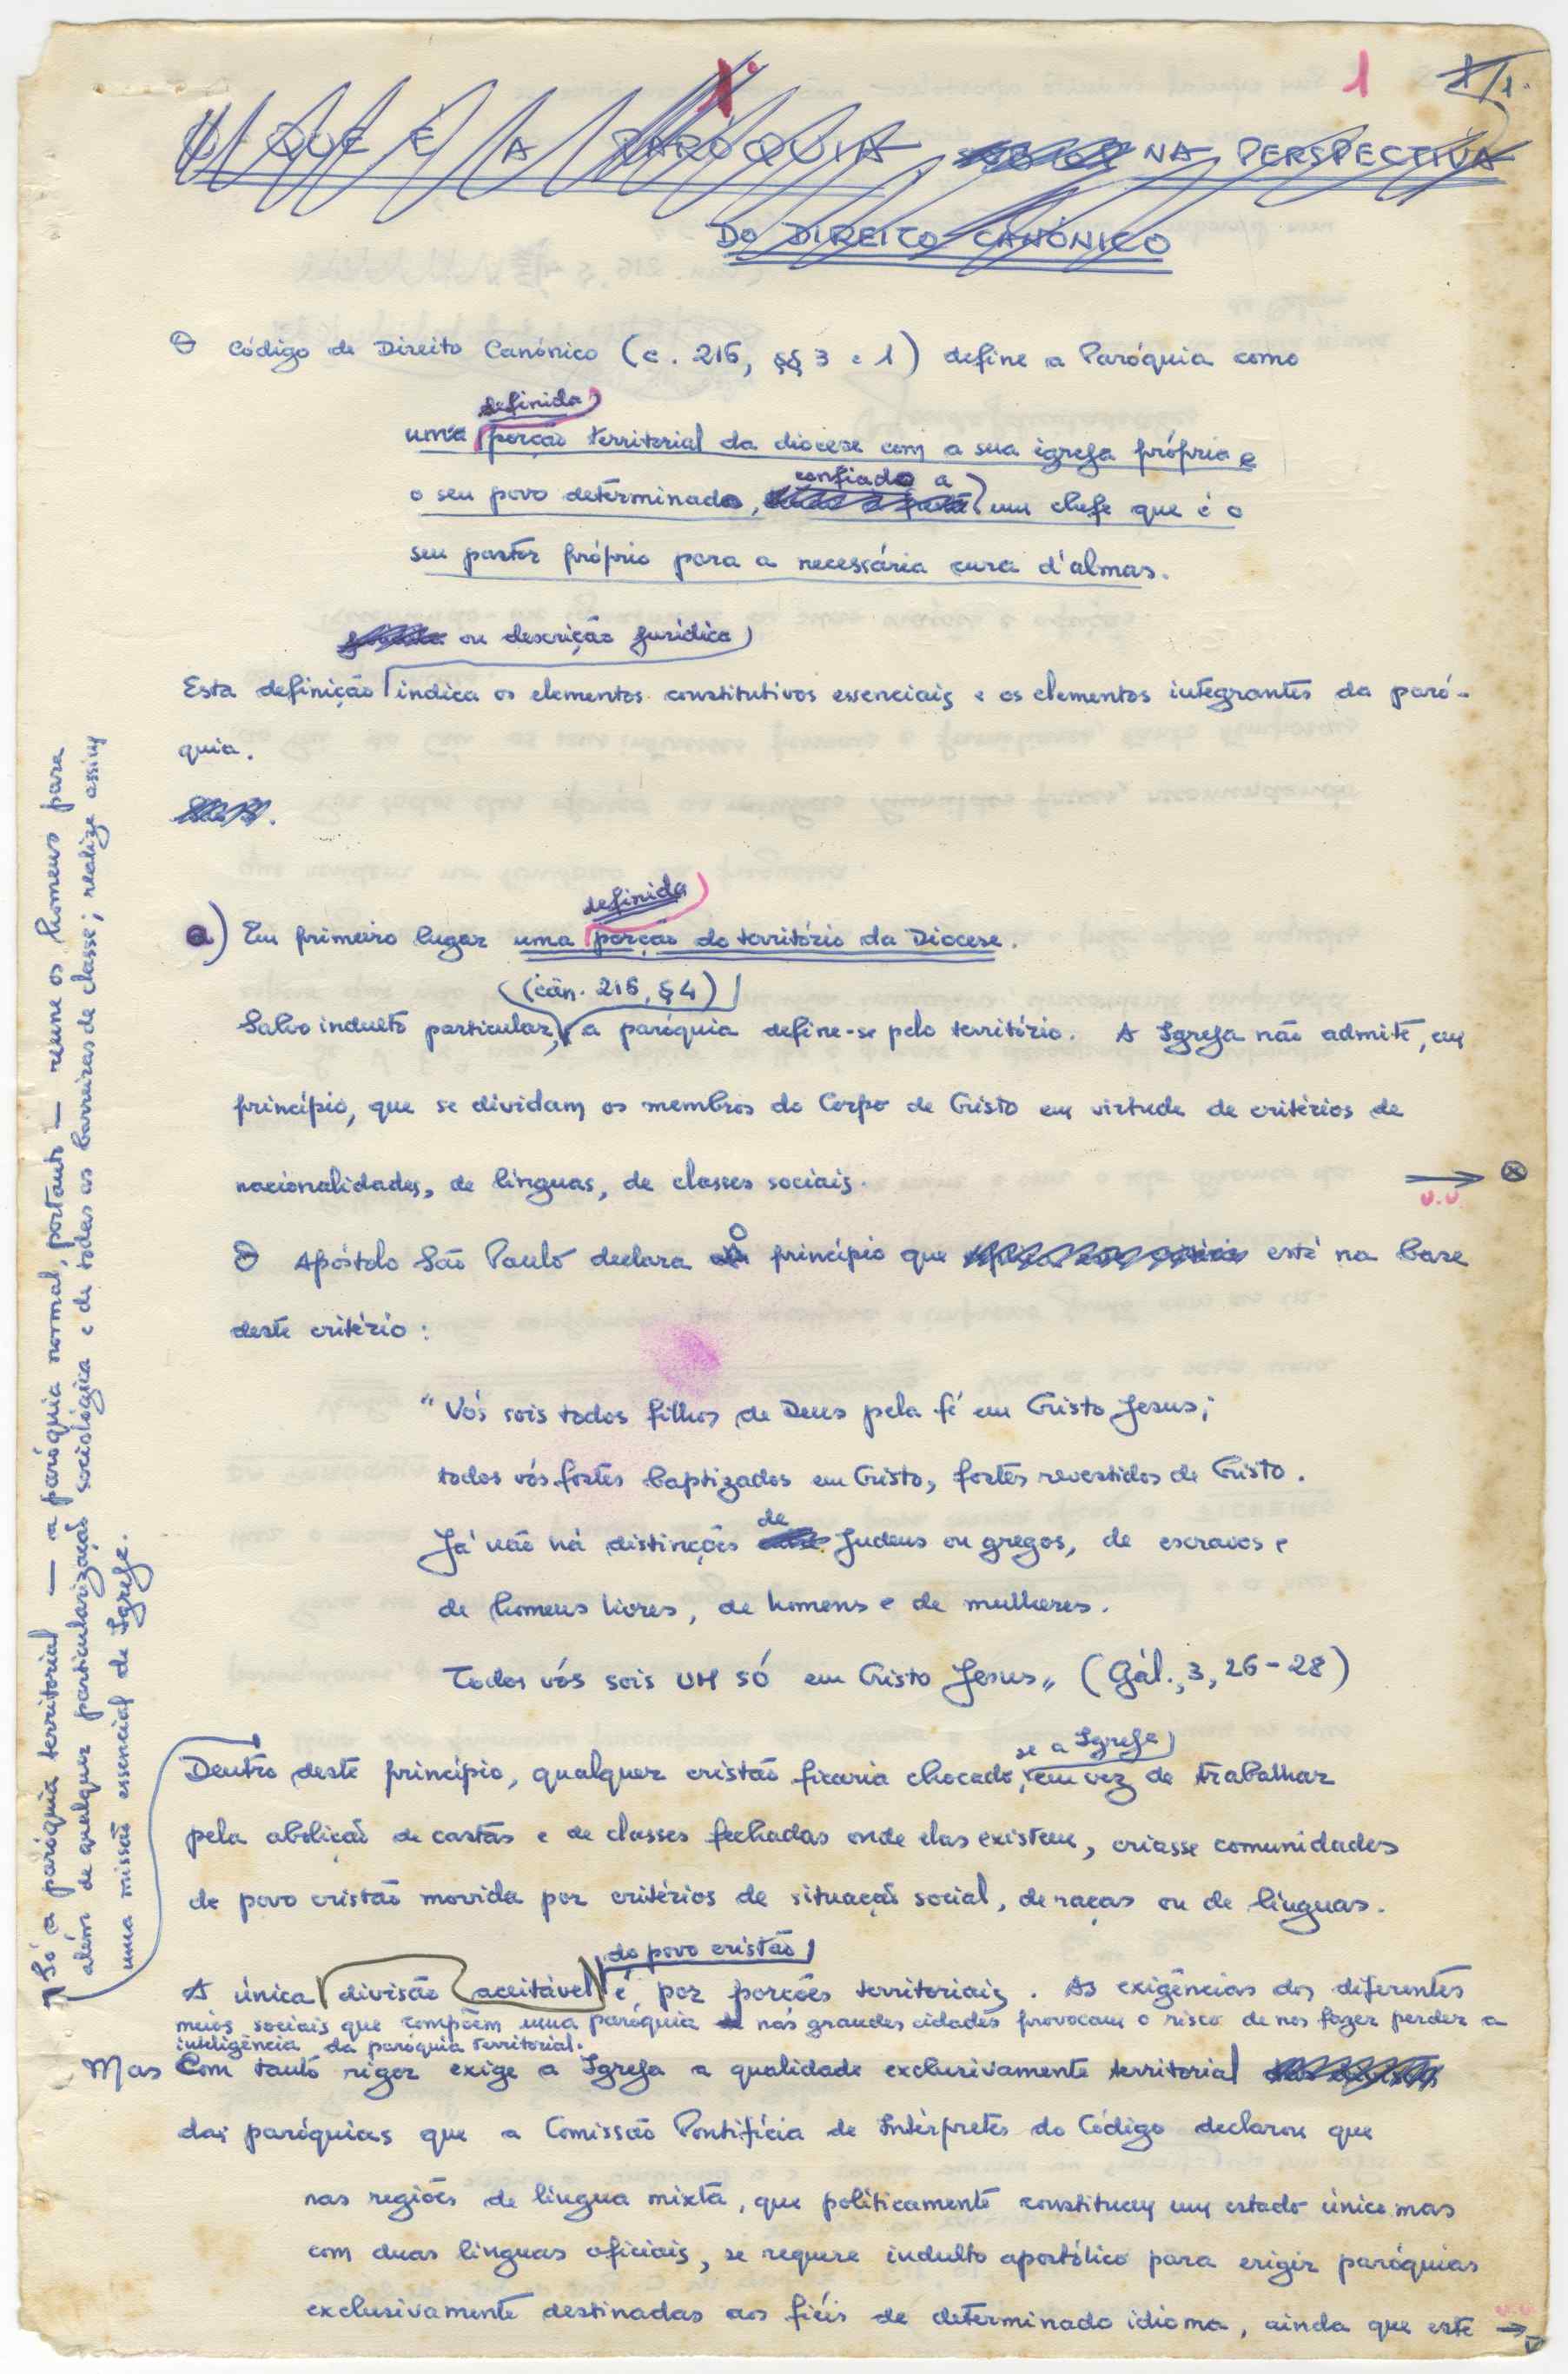 1
1/1.
O QUE É A PARÓQUIA NA PERSPECTIVA
DO DIREITO CANÓNICO
O Código de Direito Canónico (c. 216, §§ 3 e 1) define a Paróquia como
definida
uma porção territorial da diocese com a sua igreja própria e
confiado a
o seu povo determinado, um chefe que é o
seu pastor próprio para a necessária cura d'almas.
ou descrição jurídica
Esta definição indica os elementos constitutivos essenciais e os elementos integrantes da paró-
quia.
definida
a) Em primeiro lugar uma porção do território da Diocese.
(cân. 216, § 4)
Salvo indulto particular, a paróquia define-se pelo território. A Igreja não admite, em
princípio, que se dividam os membros do Corpo de Cristo em virtude de critérios de
nacionalidades, de línguas, de classes sociais.
→ ⊗
v.v.
O Apóstolo São Paulo declara o princípio que está na base
deste critério:
"Vós sois todos filhos de Deus pela fé em Cristo Jesus;
todos vós fostes baptizados em Cristo, fostes revestidos de Cristo.
de
Já não há distinções judeus ou gregos, de escravos e
de homens livres, de homens e de mulheres.
Todos vós sois UM SÓ em Cristo Jesus" (Gál., 3, 26-28)
se a Igreja
Dentro deste princípio, qualquer cristão ficaria chocado, em vez de trabalhar
pela abolição de castas e de classes fechadas onde elas existem, criasse comunidades
de povo cristão movida por critérios de situação social, de raças ou de línguas.
do povo cristão
A única divisão aceitável é por porções territoriais. As exigências dos diferentes
meios sociais que compõem uma paróquia nas grandes cidades provocam o risco de nos fazer perder a
inteligência da paróquia territorial.
Mas Com tanto rigor exige a Igreja a qualidade exclusivamente territorial
das paróquias que a Comissão Pontifícia de Intérpretes do Código declarou que
nas regiões de língua mixta, que políticamente constituem um estado único mas
com duas línguas oficiais, se requere indulto apostólico para erigir paróquias
exclusivamente destinadas aos fiéis de determinado idioma, ainda que este →
v.v.
Só a paróquia territorial — a paróquia normal, portanto — reune os homens para
além de qualquer particularização sociológica e de todas as barreiras de classe; realize assim
uma missão essencial de Igreja.